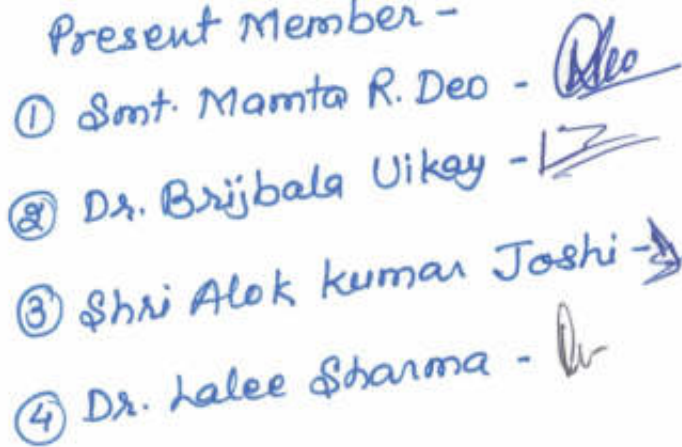 Present Member -
① Smt. Mamta R. Deo - Deo
② Dr. Brijbala Uikey -
③ Shri Alok Kumar Joshi -
④ Dr. Lalee Sharma -